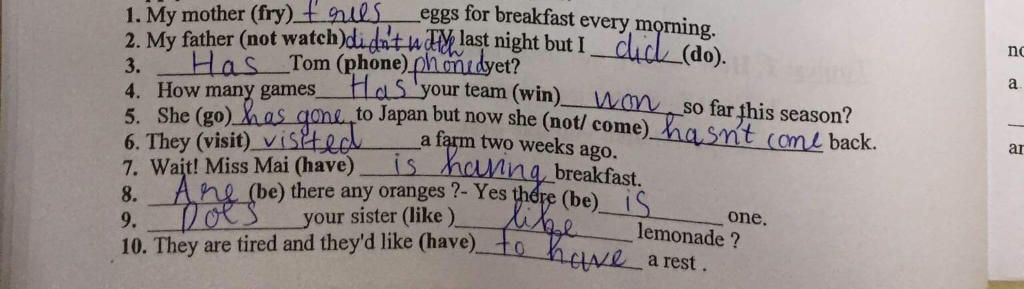 1. My mother (fry) fries eggs for breakfast every morning.
2. My father (not watch) didn't watch TV last night but I did (do).
3. Has Tom (phone) phoned yet?
4. How many games Has your team (win) won so far this season?
5. She (go) has gone to Japan but now she (not/ come) hasn't come back.
6. They (visit) visited a farm two weeks ago.
7. Wait! Miss Mai (have) is having breakfast.
8. Are (be) there any oranges ?- Yes there (be) is one.
9. Does your sister (like ) like lemonade ?
10. They are tired and they'd like (have) to have a rest .
a